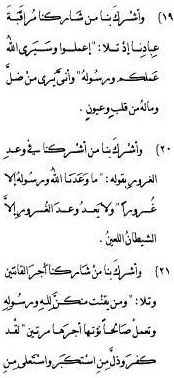 (١٩) وأشرك بنا من شاركنا مراقبة
عبادنا إذ تلا: "إعملوا وسيرى الله
عملكم ورسوله" وأنى يرى من ضل
وماله من قلب وعيون.
(٢٠) وأشرك بنا من أشركنا في وعد
الغرور بقوله: "ما وعدنا الله ورسوله إلا
غرورا" ولا يعد وعد الغرور إلا
الشيطان اللعين.
(٢١) وأشرك بنا من شاركنا أجر القانتين
وتلا: "ومن يقنت منكن لله ورسوله
وتعمل صالحا نؤتها أجرها مرتين" لقد
كفر وذل من استكبر واستعلى من